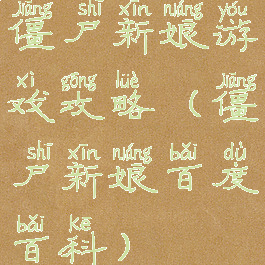 jiāng shī xīn niáng yóu
僵尸新娘游
xì gōng lüè jiāng
戏攻略(僵
shī xīn niáng bǎi dù
尸新娘百度
bǎi kē
百科)